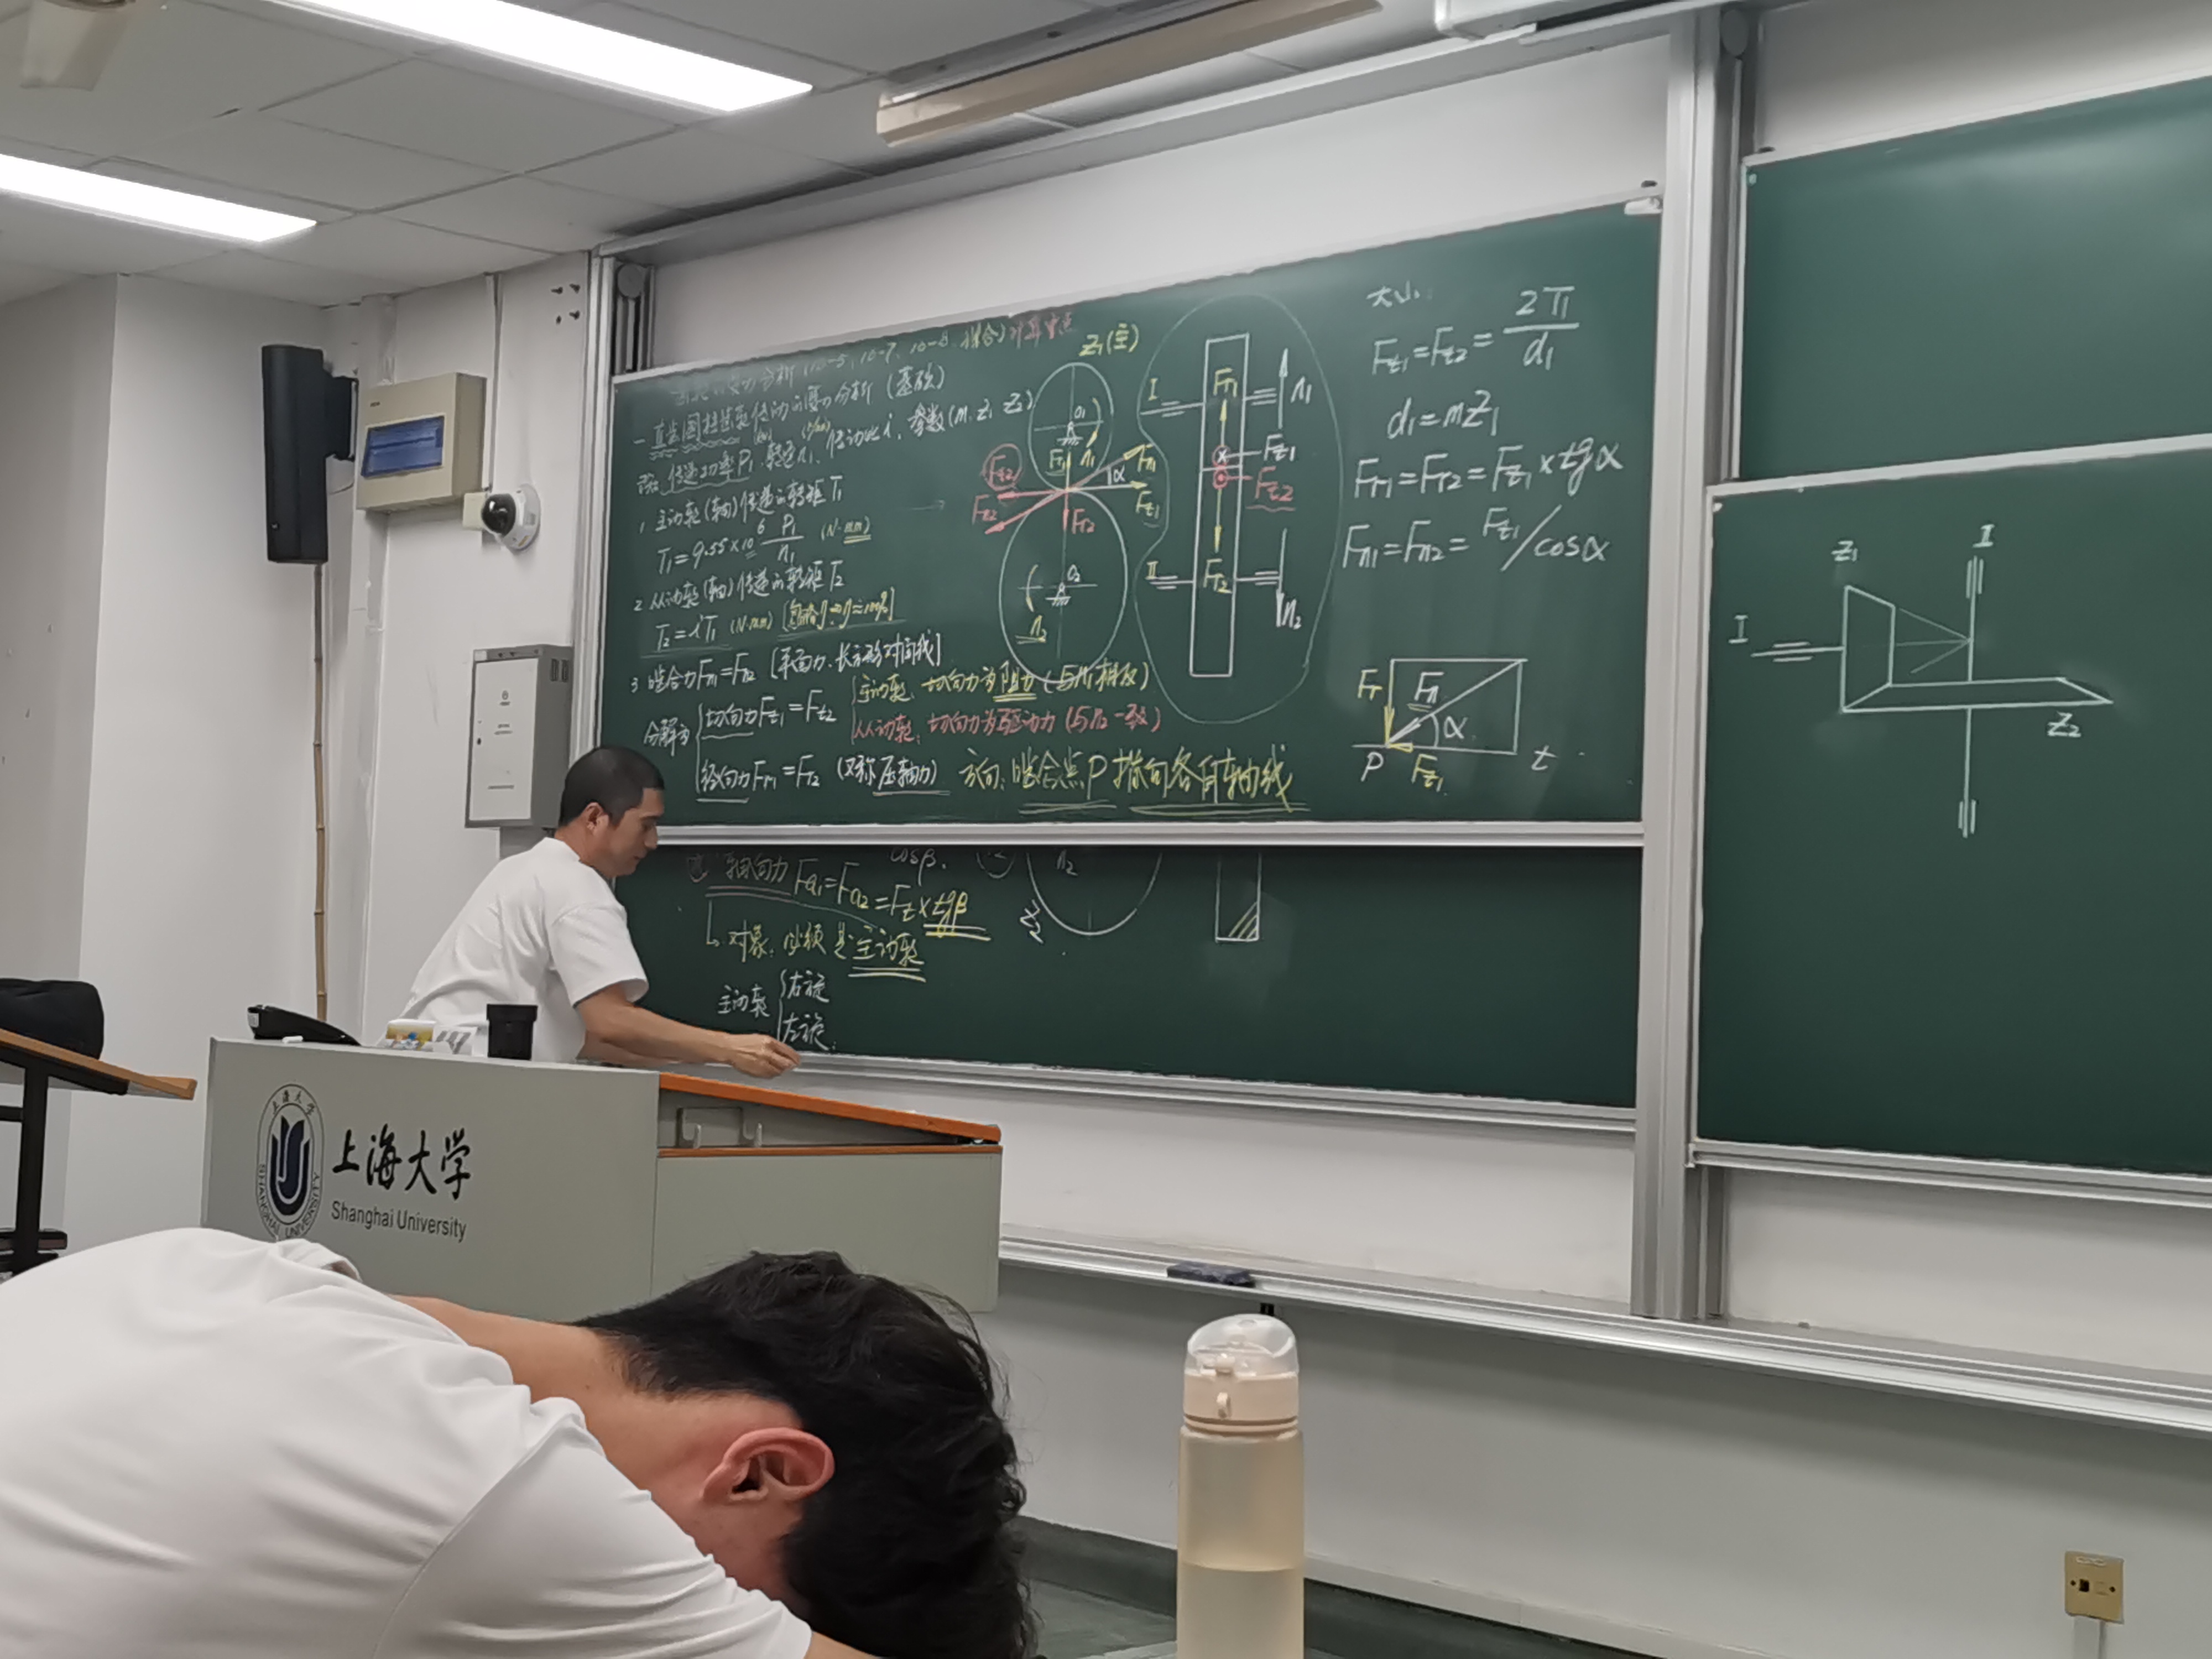 受力分析 (10-5, 10-7, 10-8, 综合) 计算重点
一 直齿圆柱齿轮传动的受力分析 (基础)
已知: 传递功率P₁ 转速n₁, 传动比 i, 参数 (m, z₁ z₂)
1, 主动轮(轴)传递的转矩 T₁
T₁=9.55×10⁶ P₁/n₁ (N·mm)
2 从动轮(轴)传递的转矩 T₂
T₂=iT₁ (N·mm)
3 啮合力 Fn1=Fn2 [平面力, 长方形对角线]
分解为 切向力 Ft1=Ft2
主动轮, 切向力为阻力 (与n₁相反)
从动轮, 切向力为驱动力 (与n₂一致)
径向力 Fr1=Fr2 (又称压轴力) 方向: 啮合点P指向各自轴线
Z₁(主)
O₁
n₁
Fr1
Fn1
α
Ft1
Ft2
Fr2
O₂
n₂
I
Fr1
n₁
Ft1
Ft2
II
Fr2
n₂
大小:
Ft1=Ft2=2T₁/d₁
d₁=mZ₁
Fr1=Fr2=Ft1×tgα
Fn1=Fn2=Ft1/cosα
Fr
Fn
α
P
Ft1
t
Z₁
I
I
Z₂
cosβ.
轴向力 Fa1=Fa2=Ft×tgβ
对象: 必须是主动轮
主动轮 右旋
左旋:
n₂
Z₂
上海大学
Shanghai University
上海大学
SHANGHAI UNIVERSITY